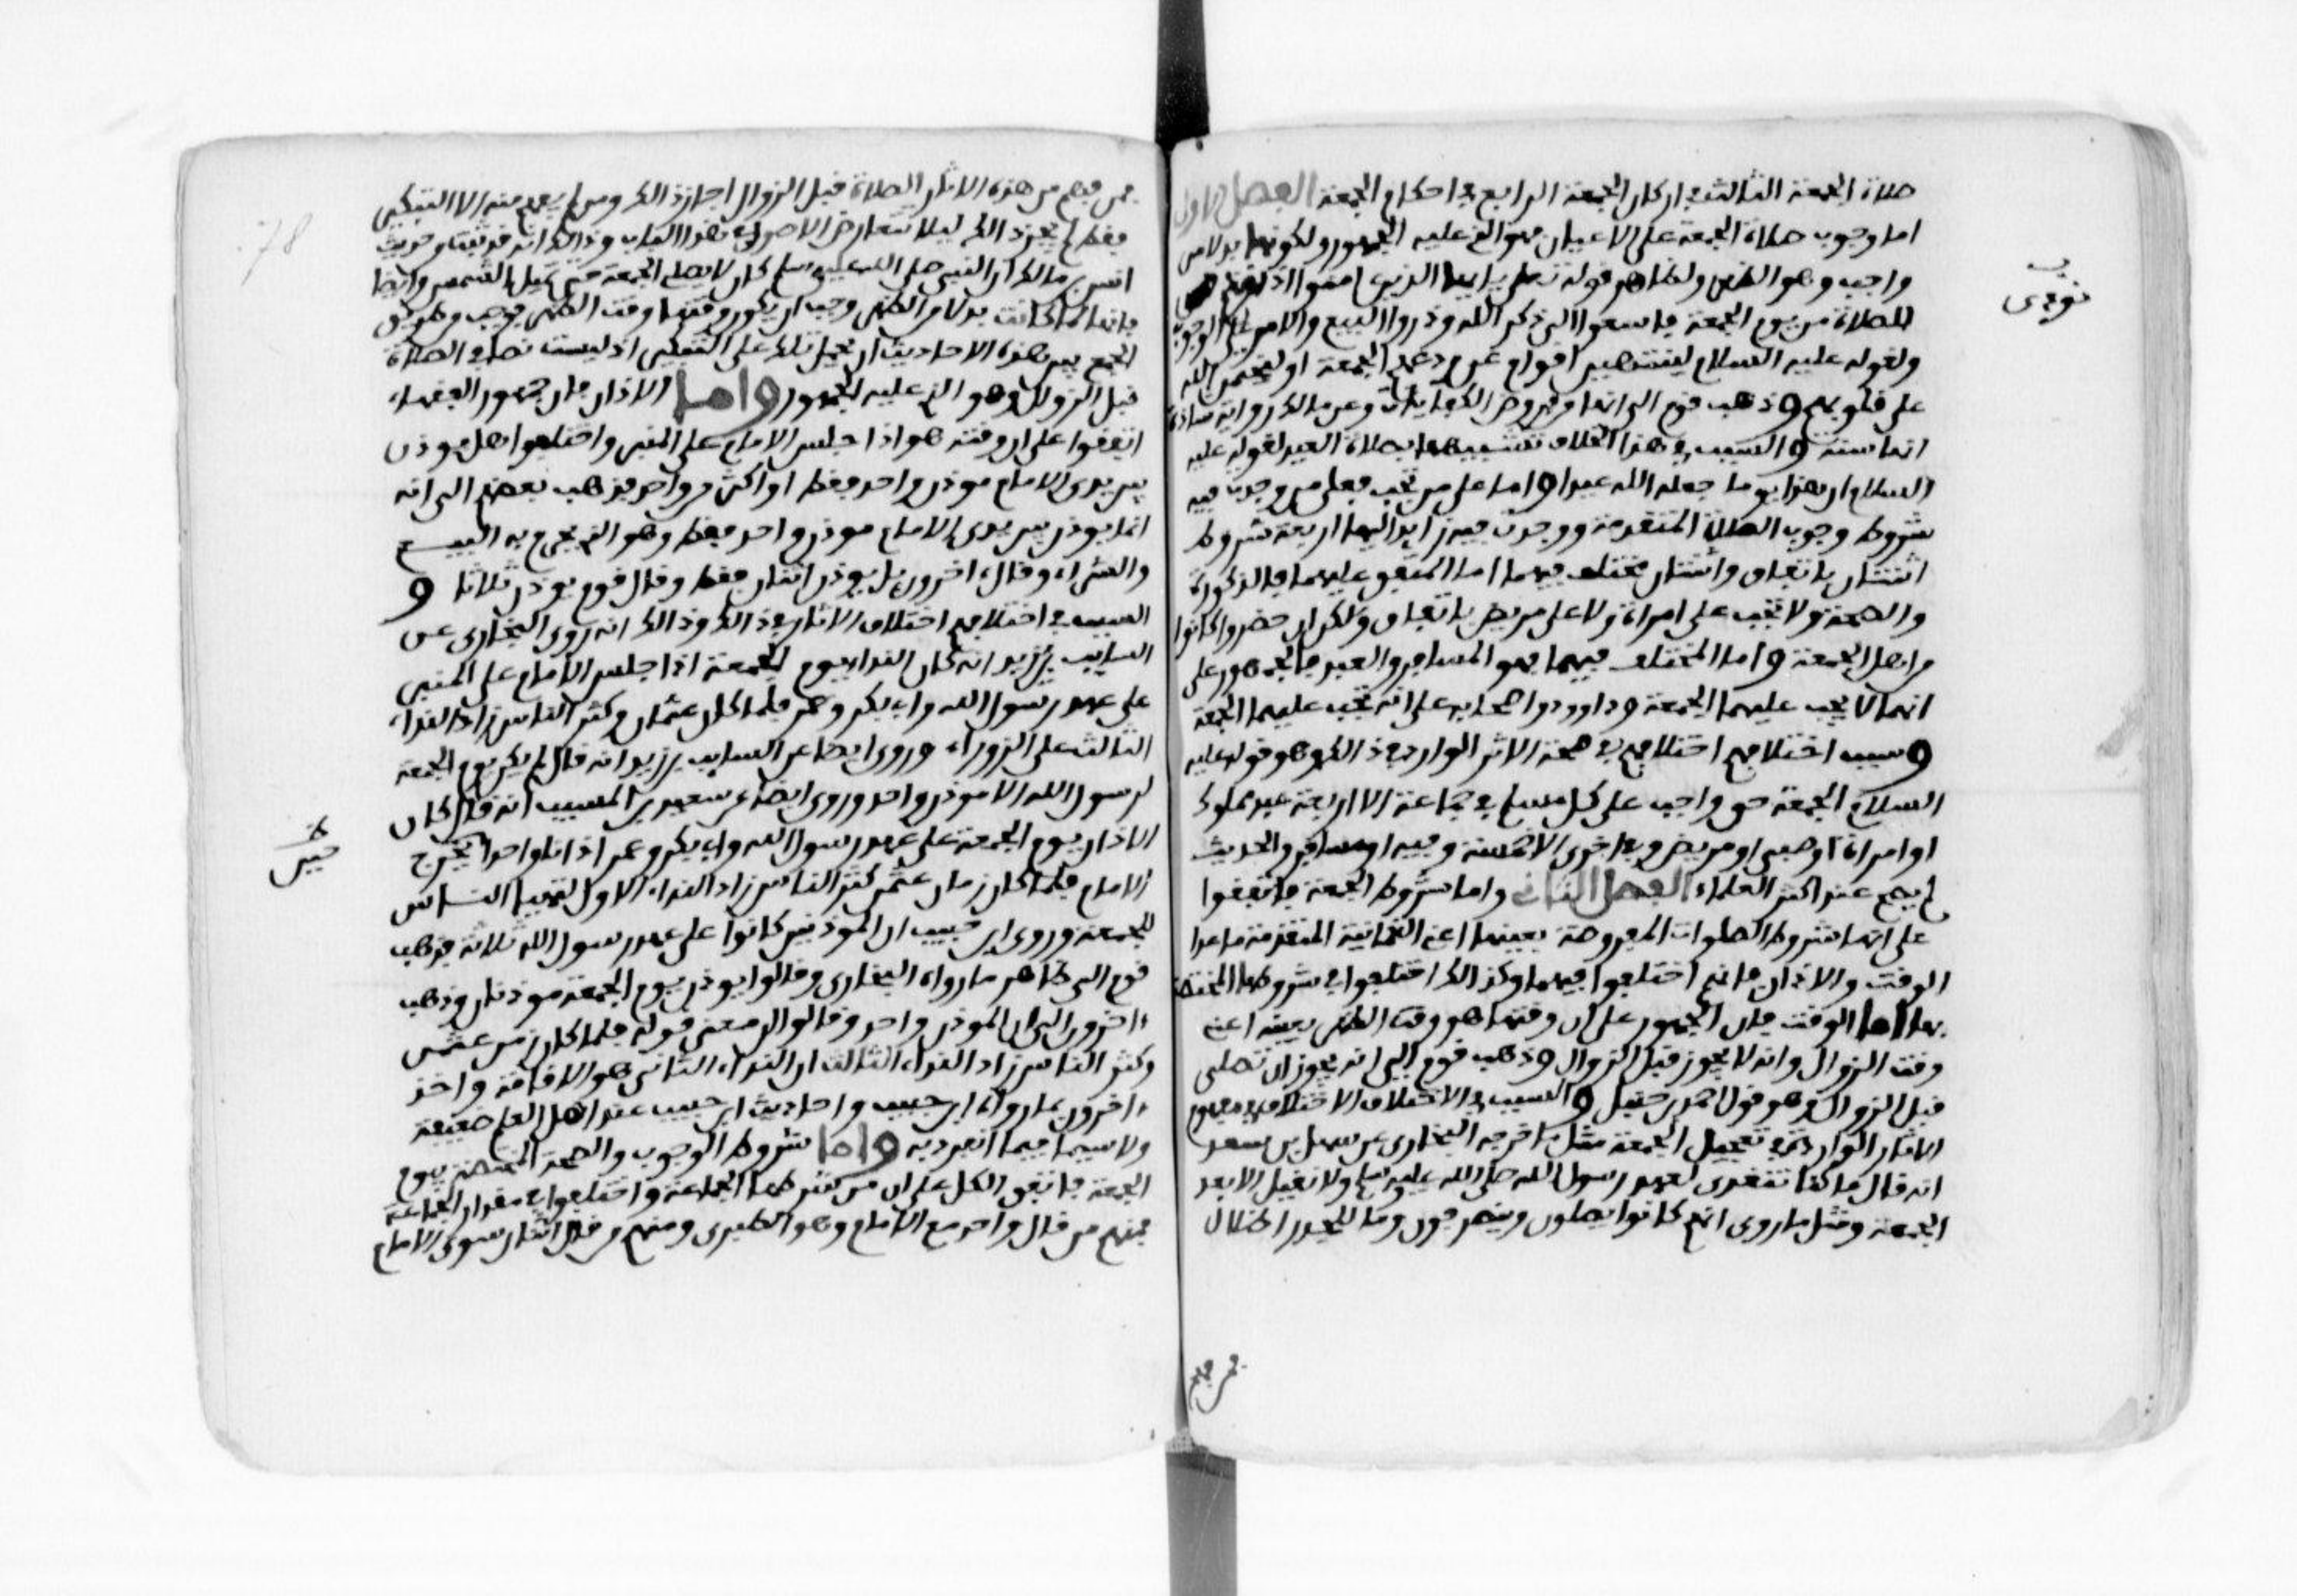 صلاة الجمعة الثالث في اركان الجمعة الرابع في احكام الجمعة الفصل الاول
اما وجوب صلاة الجمعة على الاعيان فهو الذي عليه الجمهور ولكونها بدلا من
واجب وهو الظهر ولظاهر قوله تعلى يايها الذين امنوا اذا نودي
للصلاة من يوم الجمعة فاسعوا الى ذكر الله وذروا البيع والامر على الوجوب
ولقوله عليه السلام لينتهين اقوام عن ودعهم الجمعة او ليختمن الله
على قلوبهم وذهب قوم الى انها من فروض الكفايات وعن مالك رواية شاذة
انها سنة والسبب في هذا الخلاف تشبيهها بصلاة العيد لقوله عليه
السلام ان هذا يوما جعله الله عيدا واما على من تجب فعلى من وجدت فيه
شروط وجوب الصلاة المتقدمة ووجدت فيه زايدا اليها اربعة شروط
اثنتان باتفاق واثنتان مختلف فيهما اما المتفق عليهما فالذكورة
والصحة ولا تجب على امراة ولا على مريض باتفاق ولكن ان حضروا كانوا
من اهل الجمعة واما المختلف فيهما فهو المسافر والعبد فالجمهور على
انهما لا يجب عليهما الجمعة وداوود واصحابه على انه تجب عليهما الجمعة
وسبب اختلافهم اختلافهم في صحة الاثر الوارد في ذالك وهو قوله عليه
السلام الجمعة حق واجب على كل مسلم في جماعة الا اربعة عبد مملوك
او امراة او صبي او مريض وفي اخرى الا خمسة وفيه او مسافر والحديث
لم يصح عند اكثر العلماء الفصل الثاني واما شروط الجمعة فاتفقوا
على انها شروط الصلوات المفروضة بعينها اعني الثمانية المتقدمة ما عدا
الوقت والاذان فانهم اختلفوا فيهما وكذالك اختلفوا في شروطها المختصة
بها اما الوقت فان الجمهور على ان وقتها هو وقت الظهر بعينه اعني
وقت الزوال وانه لا يجوز قبل الزوال وذهب قوم الى انه يجوز ان تصلى
قبل الزوال وهو قول احمد بن حنبل والسبب في الاختلاف الاختلاف في مفهوم
الاثار الواردة في تعجيل الجمعة مثل ما خرجه البخاري عن سهل بن سعد
انه قال ما كنا نتغدى لعهد رسول الله صلى الله عليه وسلم ولا نقيل الا بعد
الجمعة ومثل ما روى انهم كانوا يصلون وينصرفون وما للجدر اظلال
فمن فهم
فمن فهم من هذه الاثار الصلاة قبل الزوال اجاز ذالك ومن لم يفهم منه الا التبكير
فقط لم يجز ذالك ليلا تتعارض الاصول في هذا الباب وذالك انه قد ثبت من حديث
انس بن مالك ان النبي صلى الله عليه وسلم كان لا يصلي الجمعة حتى تميل الشمس وايضا
فانها لما كانت بدلا من الظهر وجب ان يكون وقتها وقت الظهر فوجب من طريق
الجمع بين هذه الاحاديث ان تحمل تلك على التبكير اذ ليست نصا في الصلاة
قبل الزوال وهو الذي عليه الجمهور واما الاذان فان جمهور الفقهاء
اتفقوا على ان وقته هو اذا جلس الامام على المنبر واختلفوا هل يوذن
بين يدي الامام موذن واحد فقط او اكثر من واحد فذهب بعضهم الى انه
انما يوذن بين يدي الامام موذن واحد فقط وهو الذي يحرم به البيع
والشراء وقال اخرون بل يوذن اثنان فقط وقال قوم يوذن ثلاثا و
السبب في اختلافهم اختلاف الاثار في ذالك وذالك انه روى البخاري عن
السايب بن يزيد انه كان النداء يوم الجمعة اذا جلس الامام على المنبر
على عهد رسول الله وابي بكر وعمر فلما كان عثمان وكثر الناس زاد النداء
الثالث على الزوراء وروى ايضا عن السايب بن يزيد انه قال لم يكن يوم الجمعة
لرسول الله الا موذن واحد وروى ايضا عن سعيد بن المسيب انه قال كان
الاذان يوم الجمعة على عهد رسول الله وابي بكر وعمر اذانا واحدا حين يخرج
الامام فلما كان زمان عثمن كثر الناس زاد النداء الاول ليتهيا الناس
للجمعة وروى ابن حبيب ان الموذنين كانوا على عهد رسول الله ثلاثة فذهب
قوم الى ظاهر ما رواه البخاري وقالوا يوذن يوم الجمعة موذنان وذهب
اخرون الى ان الموذن واحد وقالوا ان معنى قوله فلما كان زمن عثمن
وكثر الناس زاد النداء الثالث ان النداء الثاني هو الاقامة واخذ
اخرون بما رواه ابن حبيب واحاديث ابن حبيب عند اهل العلم ضعيفة
ولا سيما فيما انفرد به واما شروط الوجوب والصحة المختصة بيوم
الجمعة فاتفق الكل على ان من شرطها الجماعة واختلفوا في مقدار الجماعة
فمنهم من قال واحد مع الامام وهو الطبري ومنهم من قال اثنان سوى الامام
78